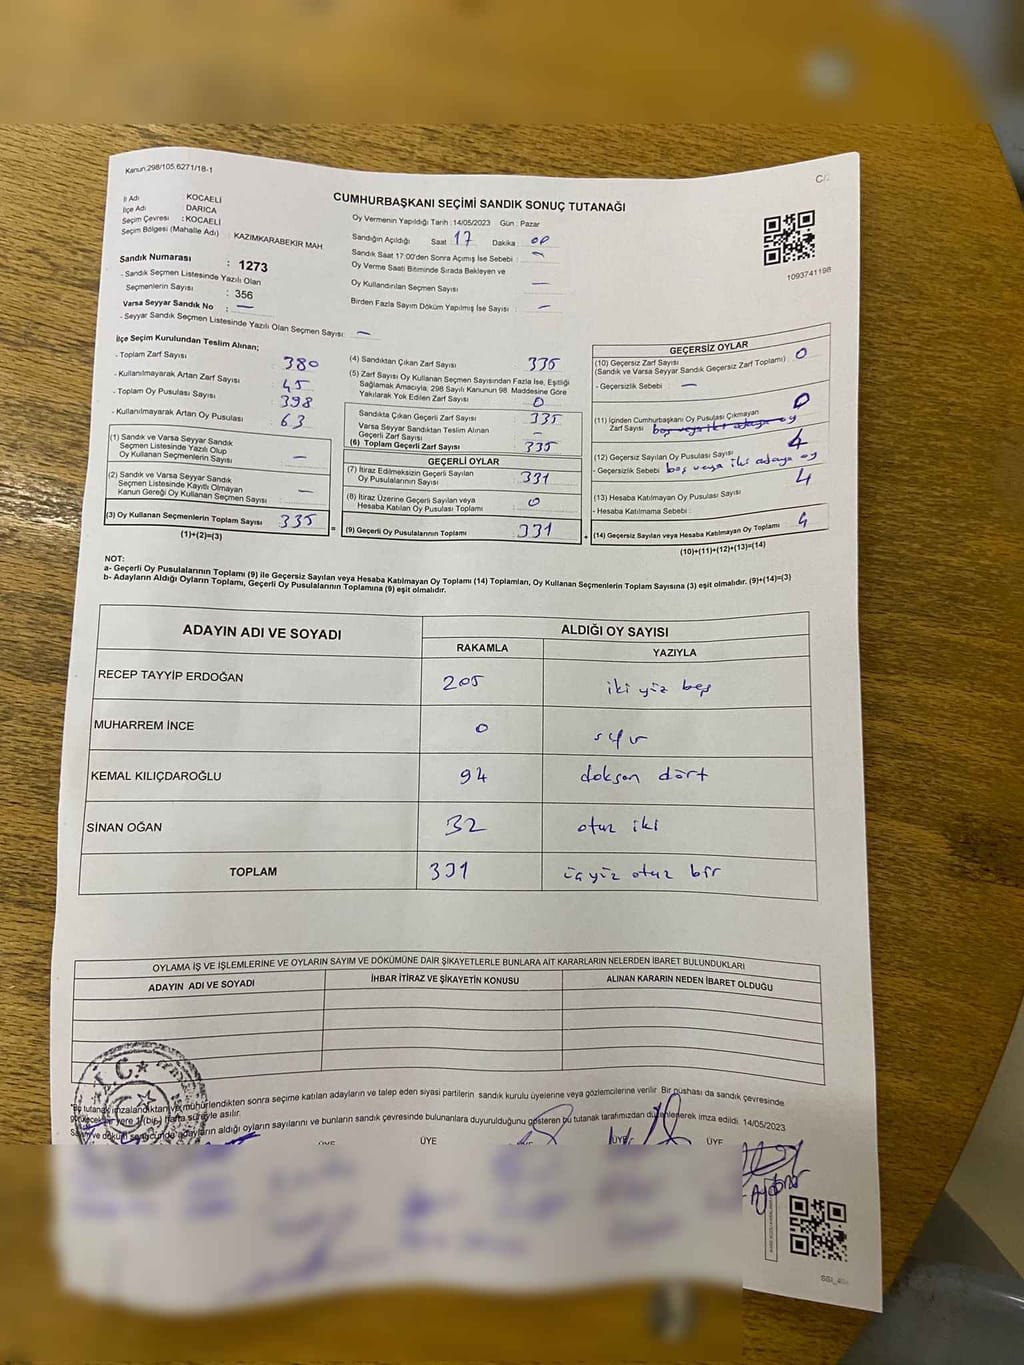 Kanun:298/105,6271/18-1
C/2
CUMHURBAŞKANI SEÇİMİ SANDIK SONUÇ TUTANAĞI
İl Adı KOCAELİ
İlçe Adı DARICA
Seçim Çevresi : KOCAELİ
Seçim Bölgesi (Mahalle Adı) : KAZIMKARABEKIR MAH.
Sandık Numarası : 1273
- Sandık Seçmen Listesinde Yazılı Olan
Seçmenlerin Sayısı : 356
Varsa Seyyar Sandık No : —
- Seyyar Sandık Seçmen Listesinde Yazılı Olan Seçmen Sayısı: —
Oy Vermenin Yapıldığı Tarih : 14/05/2023 Gün : Pazar
Sandığın Açıldığı Saat 17 Dakika : 00
Sandık Saat 17:00'den Sonra Açımış İse Sebebi : —
Oy Verme Saati Bitiminde Sırada Bekleyen ve
Oy Kullandırılan Seçmen Sayısı : —
Birden Fazla Sayım Döküm Yapılmış İse Sayısı : —
1093741198
İlçe Seçim Kurulundan Teslim Alınan;
- Toplam Zarf Sayısı : 380
- Kullanılmayarak Artan Zarf Sayısı : 45
- Toplam Oy Pusulası Sayısı : 398
- Kullanılmayarak Artan Oy Pusulası : 63
(1) Sandık ve Varsa Seyyar Sandık
Seçmen Listesinde Yazılı Olup
Oy Kullanan Seçmenlerin Sayısı : —
(2) Sandık ve Varsa Seyyar Sandık
Seçmen Listesinde Kayıtlı Olmayan
Kanun Gereği Oy Kullanan Seçmen Sayısı : —
(3) Oy Kullanan Seçmenlerin Toplam Sayısı : 335
(1)+(2)=(3)
(4) Sandıktan Çıkan Zarf Sayısı : 335
(5) Zarf Sayısı Oy Kullanan Seçmen Sayısından Fazla İse, Eşitliği
Sağlamak Amacıyla, 298 Sayılı Kanunun 98. Maddesine Göre
Yakılarak Yok Edilen Zarf Sayısı : 0
Sandıkta Çıkan Geçerli Zarf Sayısı : 335
Varsa Seyyar Sandıktan Teslim Alınan
Geçerli Zarf Sayısı : —
(6) Toplam Geçerli Zarf Sayısı : 335
GEÇERLİ OYLAR
(7) İtiraz Edilmeksizin Geçerli Sayılan
Oy Pusulalarının Sayısı : 331
(8) İtiraz Üzerine Geçerli Sayılan veya
Hesaba Katılan Oy Pusulası Toplamı : 0
= (9) Geçerli Oy Pusulalarının Toplamı : 331
GEÇERSİZ OYLAR
(10) Geçersiz Zarf Sayısı
(Sandık ve Varsa Seyyar Sandık Geçersiz Zarf Toplamı) : 0
- Geçersizlik Sebebi : —
(11) İçinden Cumhurbaşkanı Oy Pusulası Çıkmayan
Zarf Sayısı : boş veya iki adaya oy 0
(12) Geçersiz Sayılan Oy Pusulası Sayısı : 4
- Geçersizlik Sebebi : boş veya iki adaya oy
(13) Hesaba Katılmayan Oy Pusulası Sayısı : 4
- Hesaba Katılmama Sebebi :
+ (14) Geçersiz Sayılan veya Hesaba Katılmayan Oy Toplamı : 4
(10)+(11)+(12)+(13)=(14)
NOT:
a- Geçerli Oy Pusulalarının Toplamı (9) ile Geçersiz Sayılan veya Hesaba Katılmayan Oy Toplamı (14) Toplamları, Oy Kullanan Seçmenlerin Toplam Sayısına (3) eşit olmalıdır. (9)+(14)=(3)
b- Adayların Aldığı Oyların Toplamı, Geçerli Oy Pusulalarının Toplamına (9) eşit olmalıdır.
ADAYIN ADI VE SOYADI ALDIĞI OY SAYISI
RAKAMLA YAZIYLA
RECEP TAYYİP ERDOĞAN 205 iki yüz beş
MUHARREM İNCE 0 sıfır
KEMAL KILIÇDAROĞLU 94 doksan dört
SİNAN OĞAN 32 otuz iki
TOPLAM 331 üçyüz otuz bir
OYLAMA İŞ VE İŞLEMLERİNE VE OYLARIN SAYIM VE DÖKÜMÜNE DAİR ŞİKAYETLERLE BUNLARA AİT KARARLARIN NELERDEN İBARET BULUNDUKLARI
ADAYIN ADI VE SOYADI İHBAR İTİRAZ VE ŞİKAYETİN KONUSU ALINAN KARARIN NEDEN İBARET OLDUĞU
T.C.
tutanak imzalandıktan ve mühürlendikten sonra seçime katılan adayların ve talep eden siyasi partilerin sandık kurulu üyelerine veya gözlemcilerine verilir. Bir nüshası da sandık çevresinde
yere 1 (bir) hafta süreyle asılır.
ve döküm adayların aldığı oyların sayılarını ve bunların sandık çevresinde bulunanlara duyurulduğunu gösteren bu tutanak tarafımızdan düzenlenerek imza edildi. 14/05/2023
ÜYE ÜYE ÜYE ÜYE